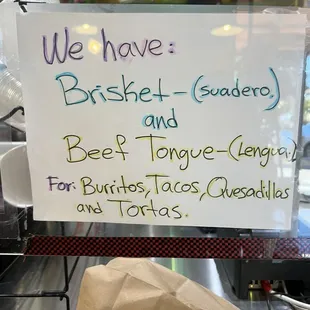 We have:
Brisket-(suadero.)
and
Beef Tongue-(Lengua.)
For: Burritos, Tacos, Quesadillas
and Tortas.